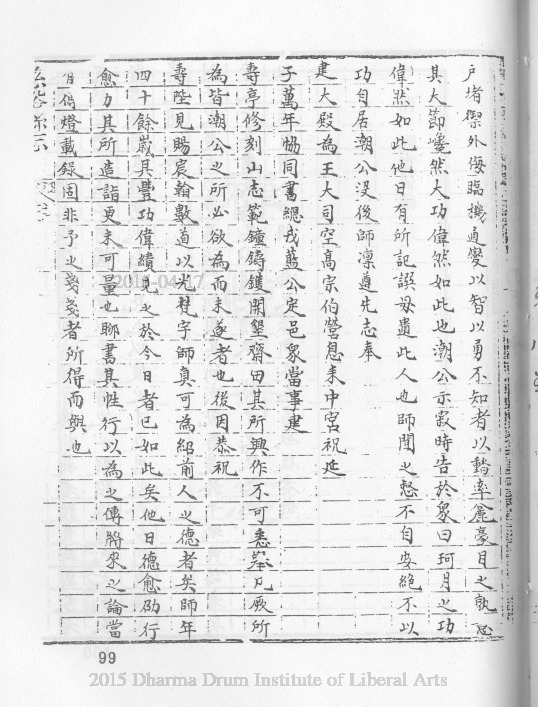 戶堵禦外侮臨機通變以智以勇不知者以豁率麄豪目之孰知
其大節巉然大功偉然如此也潮公示寂時告於眾曰珂月之功
偉然如此他日有所記譔毋遺此人也師聞之怒不自安絕不以
功自居潮公沒後師凜遵先志奉
建大殿為王大司空高宗伯營息耒中宮祝延
子萬年協同書總戎藍公定邑眾當事建
壽亭修刻山志範鐘鑄鑊開墾齋田其所興作不可悉舉凡厥所
為皆潮公之所必欲為而未遂者也後因恭祝
壽陛見賜宸翰數道以光梵宇師真可為紹前人之德者矣師年
四十餘歲具豐功偉績見之於今日者已如此矣他日德愈劭行
愈力其所造詣更未可量也聊書其性行以為之傳將來之論當
有傳燈載錄固非予之戔戔者所得而與也
2015-04-17
99
2015 Dharma Drum Institute of Liberal Arts